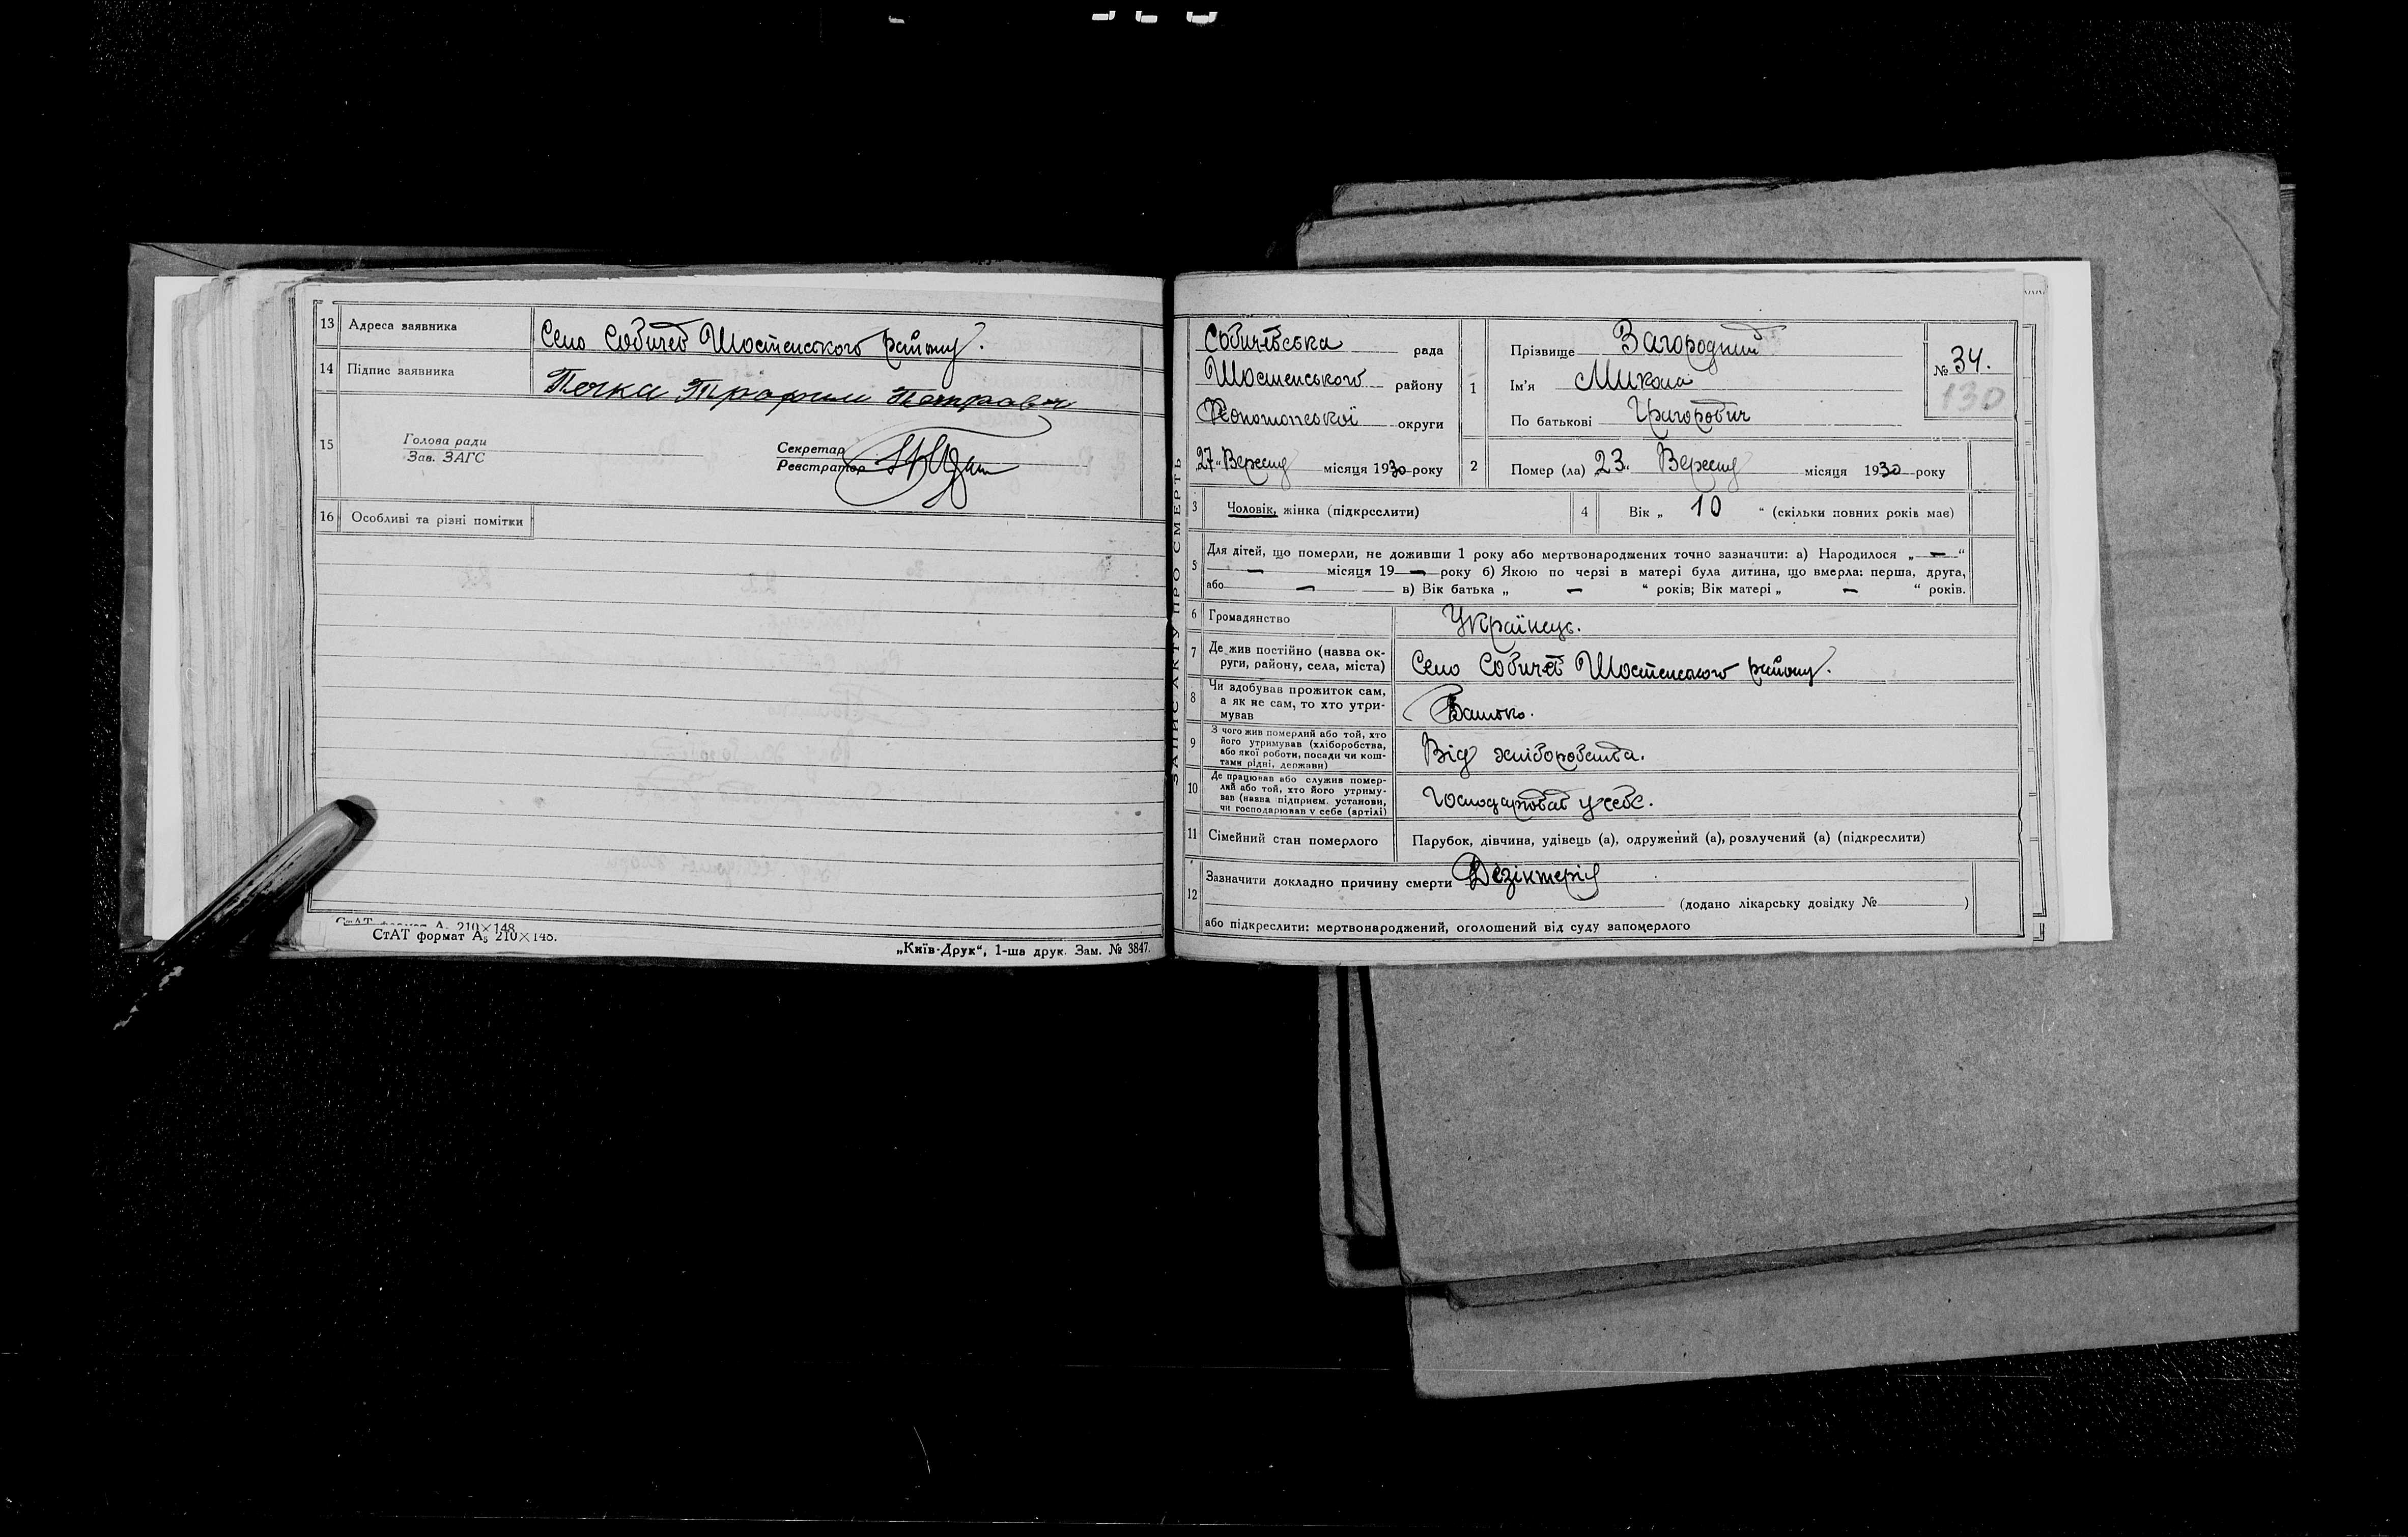 13 Адреса заявника Село Собичев Шостенського району.
14 Підпис заявника Печка Трофим Петрович
15 Голова ради
Зав. ЗАГС
Секретар
Реєстратор
16 Особливі та різні помітки
СтАТ формат А5 210×148.
„Київ-Друк“, 1-ша друк. Зам. № 3847.
ЗАПИС АКТУ ПРО СМЕРТЬ
Собичевська рада
Шостенського району
Конотопської округи
27 „ Вересня місяця 1930 року
1 Прізвище Загородний
Ім'я Микола
По батькові Григорович
№ 34.
130
2 Помер (ла) 23 „ Вересня місяця 1930 року
3 Чоловік, жінка (підкреслити)
4 Вік „ 10 “ (скільки повних років має)
5 Для дітей, що померли, не доживши 1 року або мертвонароджених точно зазначити: а) Народилося „ — “
— місяця 19 — року б) Якою по черзі в матері була дитина, що вмерла: перша, друга,
або — в) Вік батька „ — “ років; Вік матері „ — “ років.
6 Громадянство Українець.
7 Де жив постійно (назва ок-
руги, району, села, міста) Село Собичев Шостенського району.
8 Чи здобував прожиток сам,
а як не сам, то хто утри-
мував Батько.
9 З чого жив померлий або той, хто
його утримував (хліборобства,
або якої роботи, посади чи кош-
тами рідні, держави) Від хліборобства.
10 Де працював або служив помер-
лий або той, хто його утриму-
вав (назва підприєм. установи,
чи господарював у себе (артілі) Господарював у себе.
11 Сімейний стан померлого Парубок, дівчина, удівець (а), одружений (а), розлучений (а) (підкреслити)
12 Зазначити докладно причину смерти Дезінтерія
(додано лікарську довідку № )
або підкреслити: мертвонароджений, оголошений від суду запомерлого